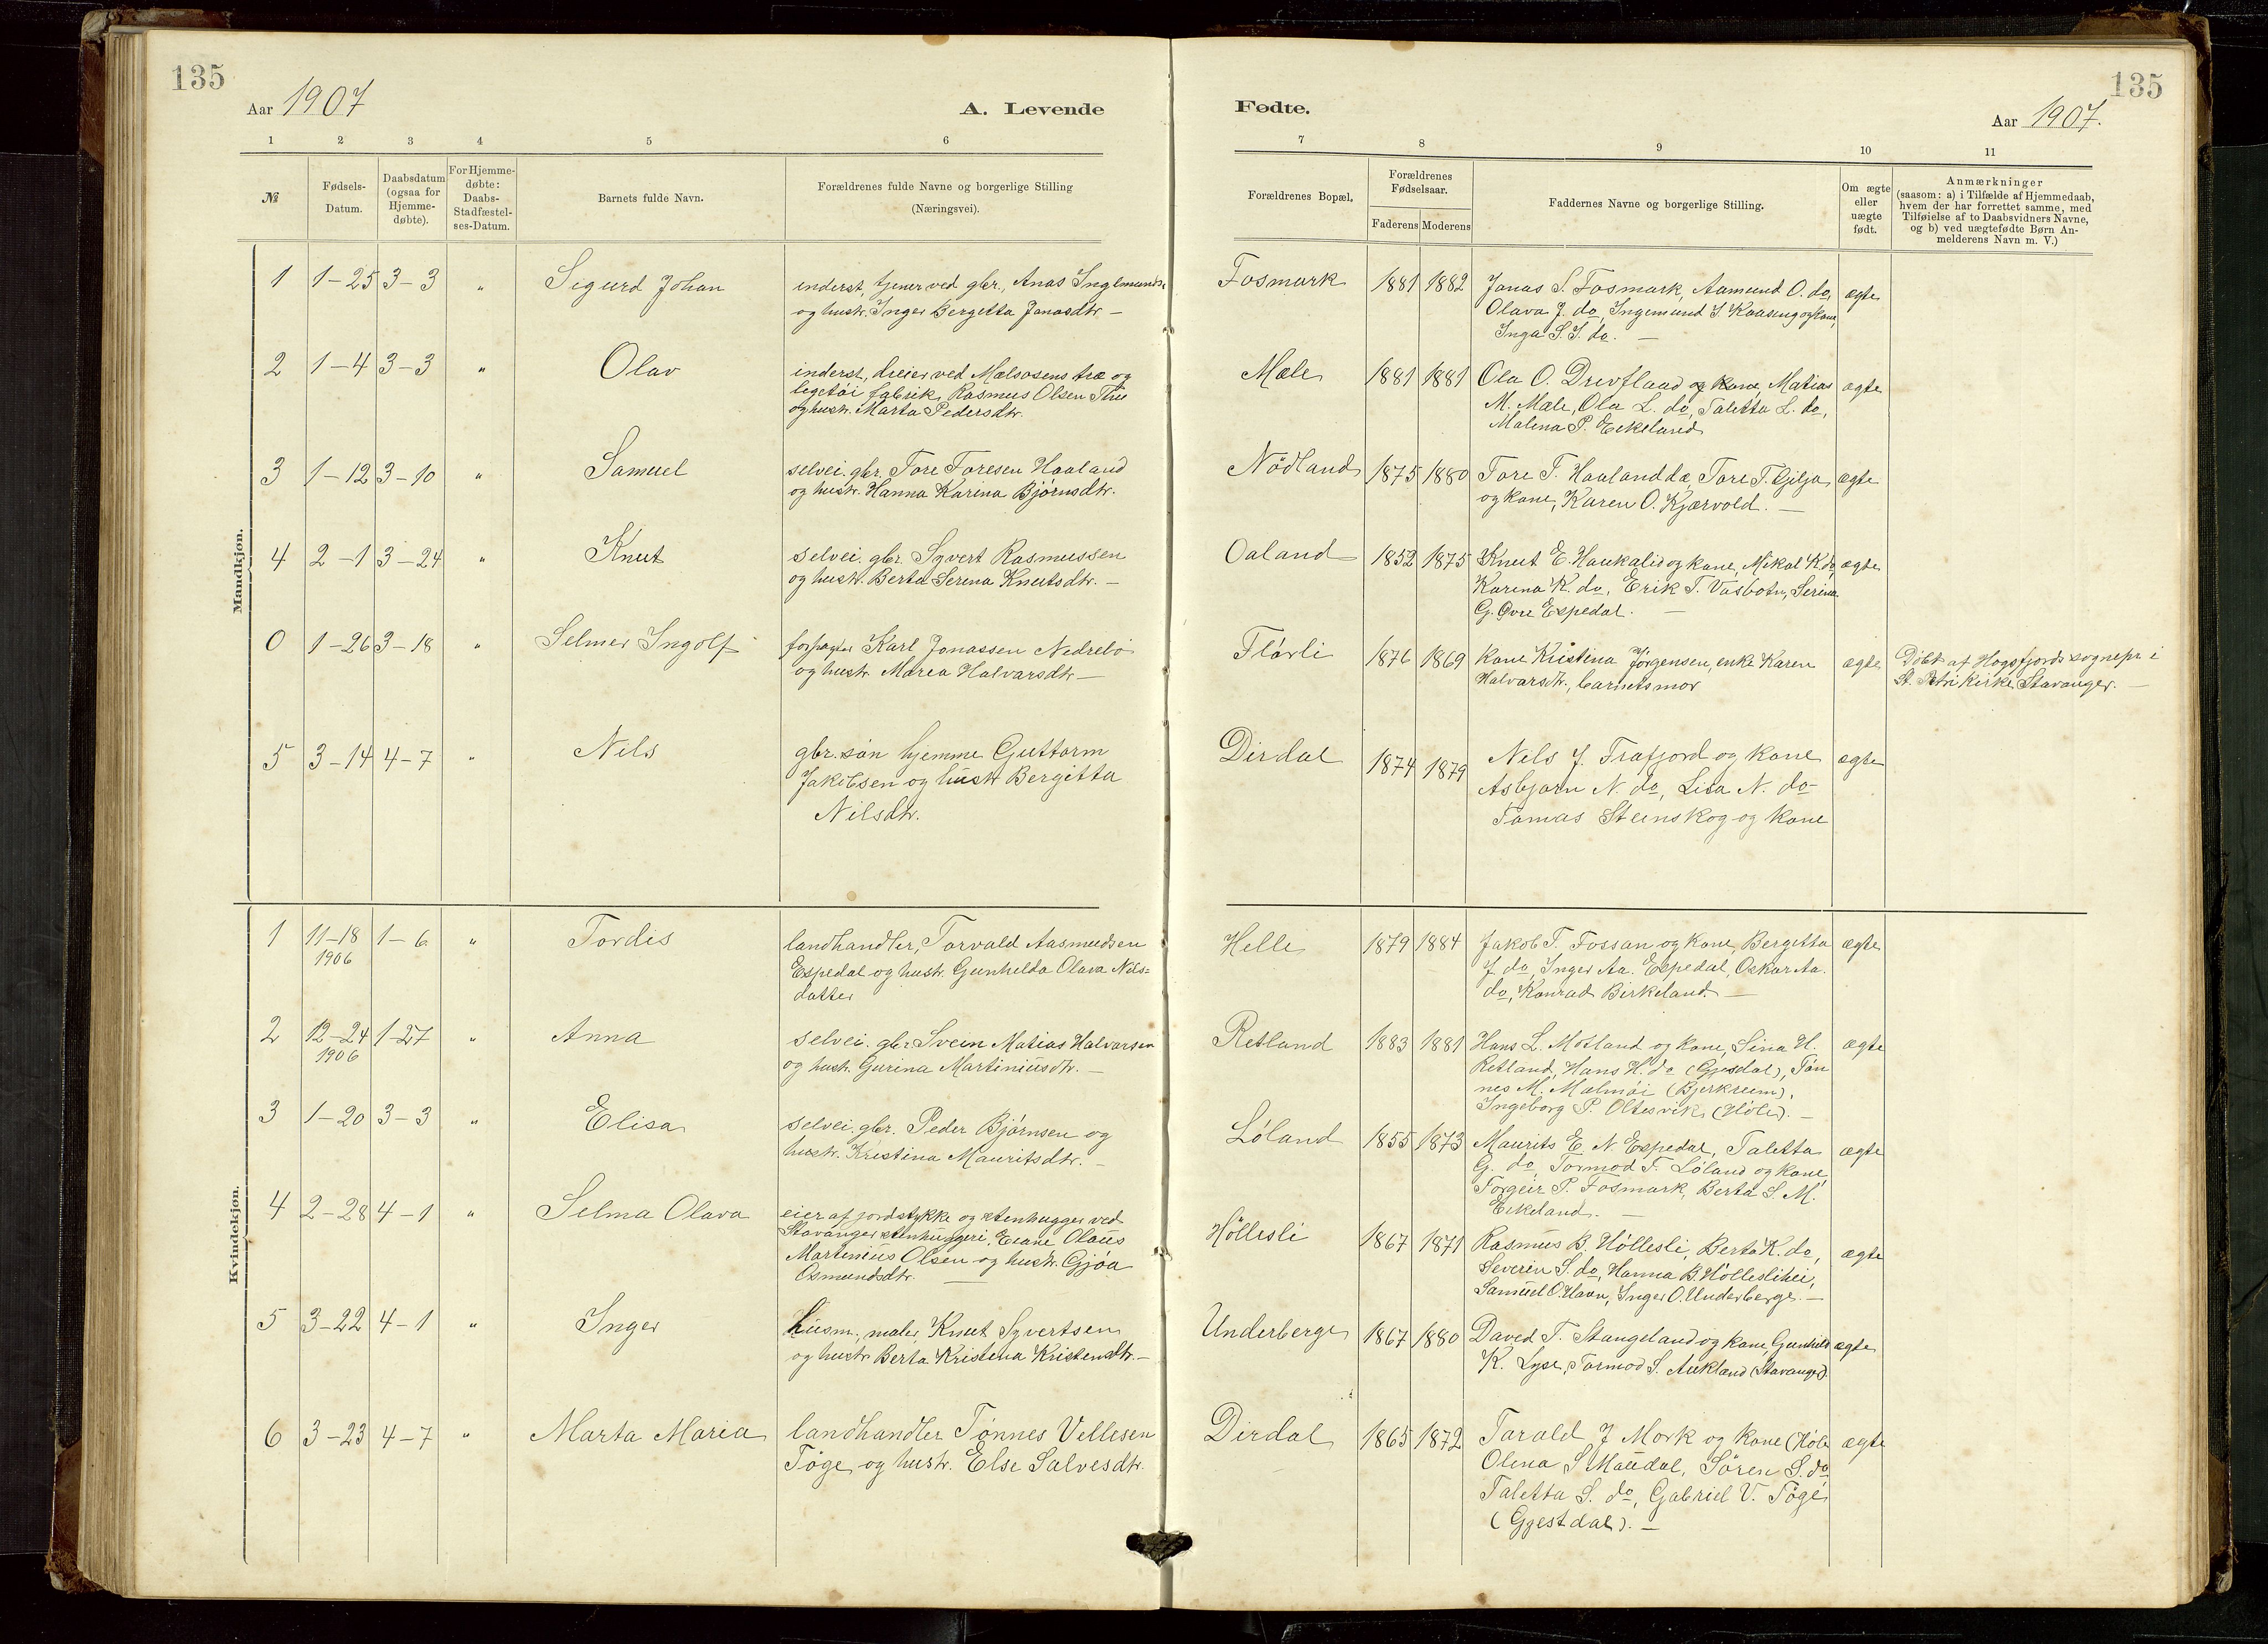 135
Aar 1907
A. Levende
1 2 3 4 5 6
№
Fødsels-
Datum.
Daabsdatum
(ogsaa for
Hjemme-
døbte).
For Hjemme-
døbte:
Daabs-
Stadfæstel-
ses-Datum.
Barnets fulde Navn.
Forældrenes fulde Navne og borgerlige Stilling
(Næringsvei).
Mandkjøn.
1 1-25 3-3 " Sigurd Johan
inderst, tjener ved gbr., Anas Inglmunds.
og hustr. Inger Bergetta Jonasdtr. —
2 1-4 3-3 " Olav
inderst, dreier ved Mælsosens træ og
legetöi fabrik, Rasmus Olsen Thu
og hustr. Marta Pedersdtr.
3 1-12 3-10 " Samuel
selvei. gbr. Tore Toresen Haaland
og hustr. Hanna Karina Bjørnsdtr.
4 2-1 3-24 " Knut
selvei. gbr. Syvert Rasmussen
og hustr. Berta Serina Knutsdtr. —
0 1-26 3-18 " Selmer Ingolf
forpagter Karl Jonassen Nedrebö
og hustr. Marea Halvarsdtr —
5 3-14 4-7 " Nils
gbr. sön hjemme Guttorm
Jakobsen og hustr Bergitta
Nilsdtr.
Kvindekjøn.
1 11-18 1-6 " Tordis
1906
landhandler, Torvald Aasmundsen
Espedal og hustr. Gunhelda Olava Nils-
datter
2 12-24 1-27 " Anna
1906
selvei. gbr Svein Matias Halvarsen
og hustr. Gurina Martiniusdtr. —
3 1-20 3-3 " Elisa
selvei. gbr. Peder Björnsen og
hustr. Kristina Mauritsdtr. —
4 2-28 4-1 " Selma Olava
eier af jordstykke og stenhugger ved
Stavanger stenhuggeri, Olaus
Martinius Olsen og hustr. Gjöa
Osmundsdtr. —
5 3-22 4-1 " Inger
husm., maler, Knut Syvertsen
og hustr Berta Kristena Kristensdtr. —
6 3-23 4-7 " Marta Maria
landhandler Tönnes Vellesen
Töge og hustr. Else Salvesdtr.
135
Fødte.
Aar 1907.
7 8 9 10 11
Forældrenes Bopæl.
Forældrenes
Fødselsaar.
Faderens Moderens
Faddernes Navne og borgerlige Stilling.
Om ægte
eller
uægte
født.
Anmærkninger
(saasom: a) i Tilfælde af Hjemmedaab,
hvem der har forrettet samme, med
Tilføielse af to Daabsvidners Navne,
og b) ved uægtefødte Børn An-
melderens Navn m. V.)
Fosmark 1881 1882 Jonas S. Fosmark, Aamund O. do, ægte
Olava J. do, Ingemund S Kaasung og kone,
Inga S. I. do. —
Mæle 1881 1881 Ola O. Drevfland og kone, Matias ægte
M. Mæle, Ola L. do, Taletta L. do,
Malena P. Eikeland
Nödland 1875 1880 Tore T. Haaland do, Tore T. Gilja ægte
og kone, Karen O. Kjærvold. —
Oaland 1852 1875 Knut E. Haukalid og kone, Mikal K do, ægte
Karina K. do, Erik T. Vasbotn, Serina
G. Øvre Espedal. —
Flörli 1876 1869 Kone Kristina Jörgensen, enke Karen ægte
Halvarsdtr., barnets mor
Döbt af Høgsfjords sognepr i
St. Petri kirke, Stavanger. —
Dirdal 1874 1879 Nils J. Frafjord og kone ægte
Asbjørn N. do, Lisa N. do
Tomas Steinskog og kone
Helle 1879 1884 Jakob T. Fossan og kone, Bergetta ægte
J. do, Inger Aa. Espedal, Oskar Aa.
do, Konrad Birkeland. —
Retland 1883 1881 Hans L. Motland og kone, Sina H. ægte
Retland, Hans H. do (Gjesdal), Tön
nes M. Malmöi (Bjerkreim),
Ingeborg P. Oltesvik (Höle). —
Löland 1855 1873 Maurits E. N. Espedal, Taletta ægte
G. do, Tormod T. Löland og kone,
Torgeir P. Fosmark, Berta S. M.
Eikeland. —
Höllesli 1867 1871 Rasmus B. Höllesli, Berta K. do, ægte
Severin S. do, Hanna B. Höllesli
Samuel O. Havn, Inger O. Underberge. —
Underberge 1867 1880 David T. Stangeland og kone, Gunhild ægte
K. Lyse, Tormod S. Aukland (Stavanger).
Dirdal 1865 1872 Tarald J Mork og kone (Höle ægte
Olena S Maudal, Sören S. do
Taletta S. do, Gabriel V. Töge
(Gjestdal). —